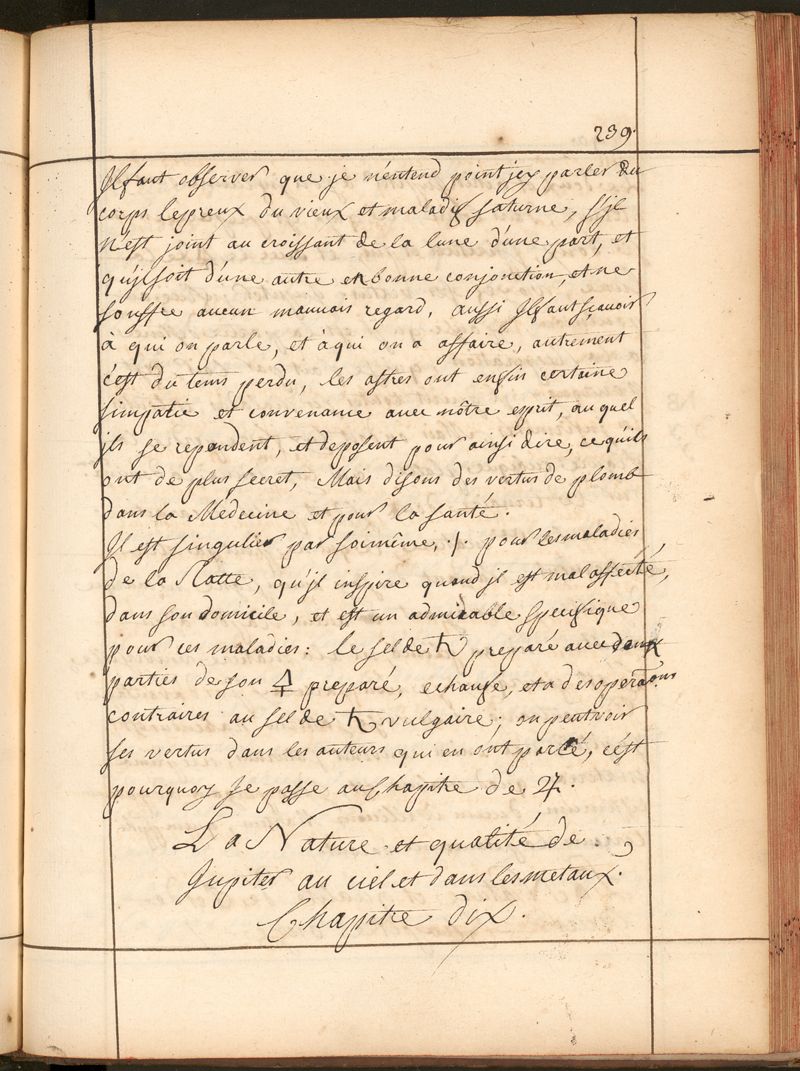 239.
Il faut observer que je n'entend point jcy parler du
corps lepreux du vieux et maladif saturne, s'jl
n'est joint au croissant de la lune d'une part, et
qu'jl soit d'une autre en bonne conjonction, et ne
souffre aucun mauuais regard, aussi Il faut sçauoir
à qui on parle, et à qui on a affaire, autrement
c'est du tems perdu, les astres ont enfin certaine
simpatie et convenance auec nôtre esprit, au quel
jls se repondent, et deposent pour ainsi dire, ce qu'ils
ont de plus secret, Mais disons des vertus de plomb
dans la Medecine et pour la santé.
Il est singulier par soi même, ·/· pour les maladies
de la Ratte, qu'jl inspire quand jl est mal affecté,
dans son domicile, et est un admirable specifique
pour ces maladies: le sel de ♄ preparé auec deux
parties de son 🜍 preparé, echaufe, et a des operaõns
contraires au sel de ♄ vulgaire; on peut voir
ses vertus dans les auteurs qui en ont parlé, c'est
pourquoy Je passe au Chapitre de ♃.
La Nature et qualité de
Jupiter au ciel et dans les metaux.
Chapitre dix.